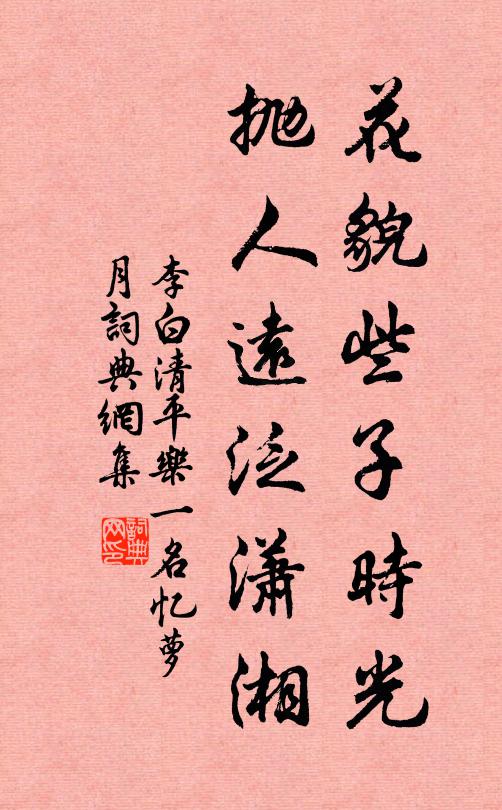 花貌些子時光
抛人遠泛瀟湘
李白清平樂一名忆萝
月詞典網集
詞典
网印